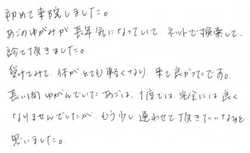 初めて来院しました。
あごのゆがみが長年気になっていて ネットで検索して、
診て頂きました。
受けてみて、体がとても軽くなり 来て良かったです。
長い間ゆがんでいたあごは、1度では、完全には良く
なりませんでしたが、もう少し通わせて頂きたいなあと
思いました。